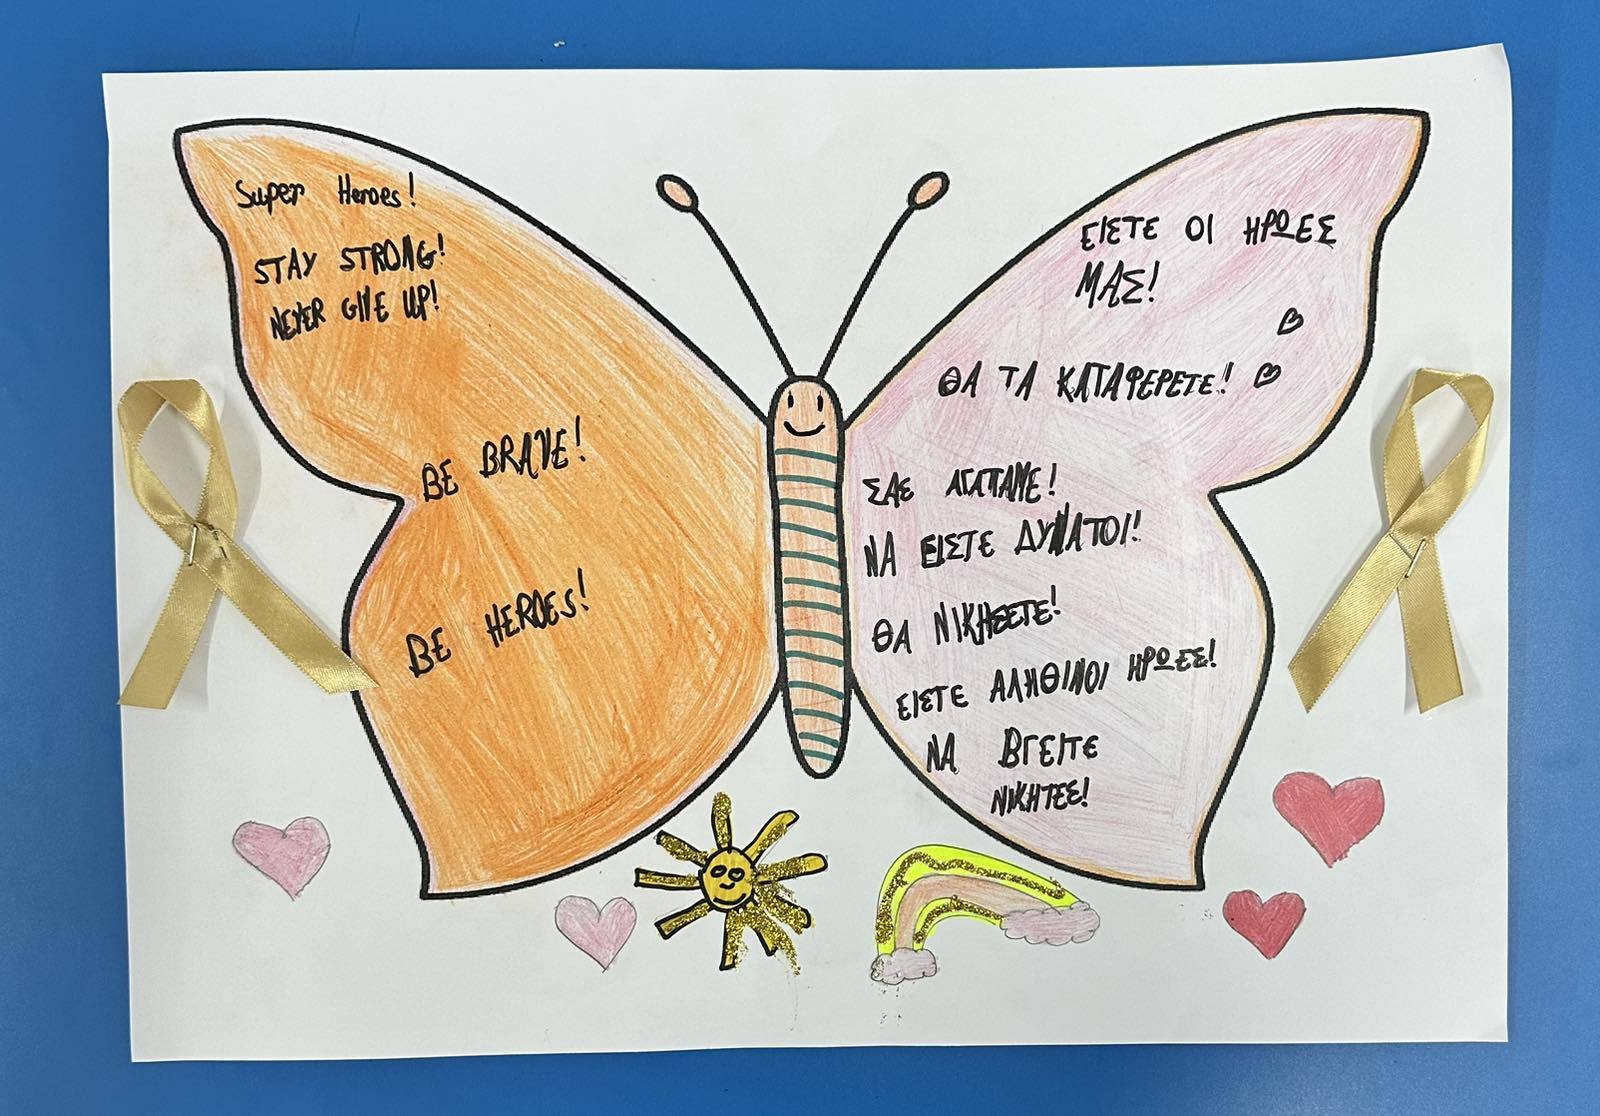 Super Heroes!
STAY STRONG!
NEVER GIVE UP!
BE BRAVE!
BE HEROES!
ΕΙΣΤΕ ΟΙ ΗΡΩΕΣ
ΜΑΣ!
ΘΑ ΤΑ ΚΑΤΑΦΕΡΕΤΕ!
ΣΑΣ ΑΓΑΠΑΜΕ!
ΝΑ ΕΙΣΤΕ ΔΥΝΑΤΟΙ!
ΘΑ ΝΙΚΗΣΕΤΕ!
ΕΙΣΤΕ ΑΛΗΘΙΝΟΙ ΗΡΩΕΣ!
ΝΑ ΒΓΕΙΤΕ
ΝΙΚΗΤΕΣ!